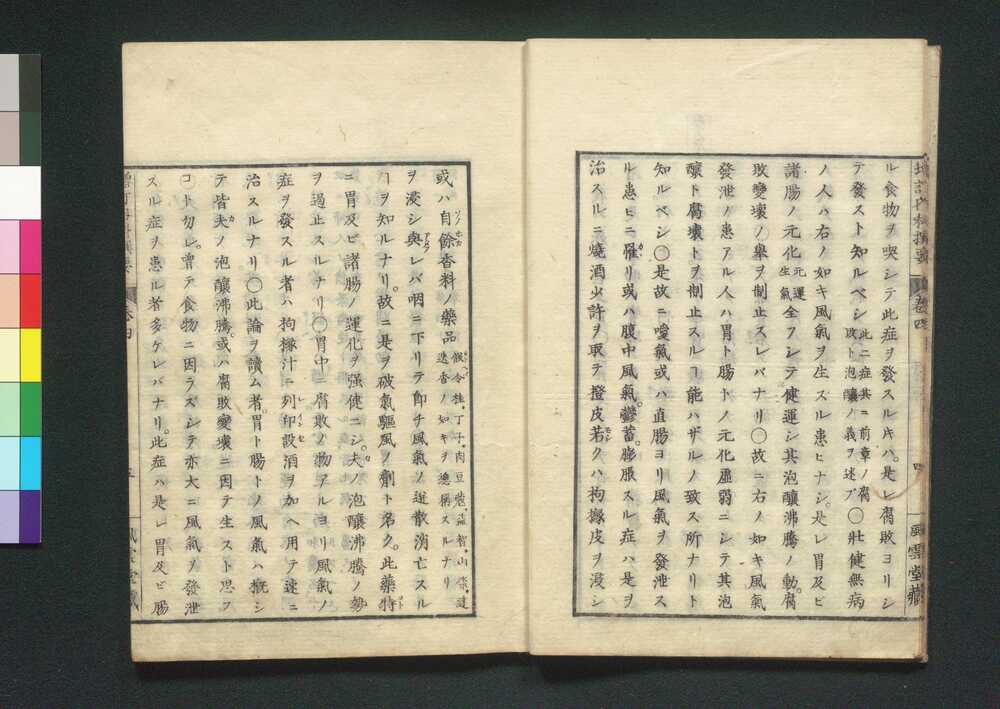 増訂内科撰要
巻四
四
風雲堂藏
ル食物ヲ喫シテ此症ヲ發スル𪜈ハ。是レ腐敗ヨリシ
テ發スト知ルベシ此二症其ニ前章ノ腐敗ト泡釀ノ義ヲ述ブ〇壯健無病
ノ人ハ右ノ如キ風氣ヲ生スル患ヒナシ。是レ胃及ビ
諸腸ノ元化元運生氣全フシテ健運シ其泡釀沸騰ノ動。腐
敗變壞ノ舉ヲ制止スレバナリ〇故ニ右ノ如キ風氣
發泄ノ患アル人ハ胃ト腸トノ元化虛弱ニシテ其泡
釀ト腐壞トヲ制止スルヿ能ハザルノ致ス所ナリト
知ルベシ〇是故ニ噯氣或ハ直腸ヨリ風氣ヲ發泄ス
ル患ヒニ罹リ或ハ腹中風氣鬱蓄。膨脹スル症ハ是ヲ
治スルニ燒酒少許ヲ取テ橙皮若クハ拘櫞皮ヲ浸シ
或ハ自餘香料ノ藥品假令桂。丁子。肉豆蔲。益智。山柰。建香ノ如キヲ總稱スルナリ
ヲ浸シ與レバ咽ニ下リテ即チ風氣ノ逆散消亡スル
ヿヲ知ルナリ。故ニ是ヲ破氣驅風ノ劑ト名ク。此藥特
ニ胃及ビ諸腸ノ運化ヲ强健ニシ夫ノ泡釀沸騰ノ勢
ヲ遏止スルナリ〇胃中ニ腐敗ノ物アルヨリ風氣ノ
症ヲ發スル者ハ拘櫞汁ニ列印設酒ヲ加ヘ用テ速ニ
治スルナリ〇此論ヲ讀ム者胃ト腸トノ風氣ハ槪シ
テ皆夫ノ泡釀沸騰。或ハ腐敗變壞ニ因テ生スト思フ
ヿ勿レ。曾テ食物ニ因ラズシテ亦大ニ風氣ヲ發泄
スル症ヲ患ル者多ケレバナリ。此症ハ是レ胃及ビ腸